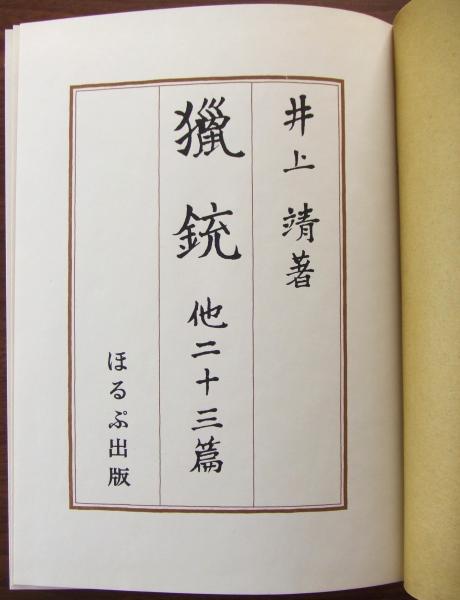 井上靖著
獵銃 他二十三篇
ほるぷ出版